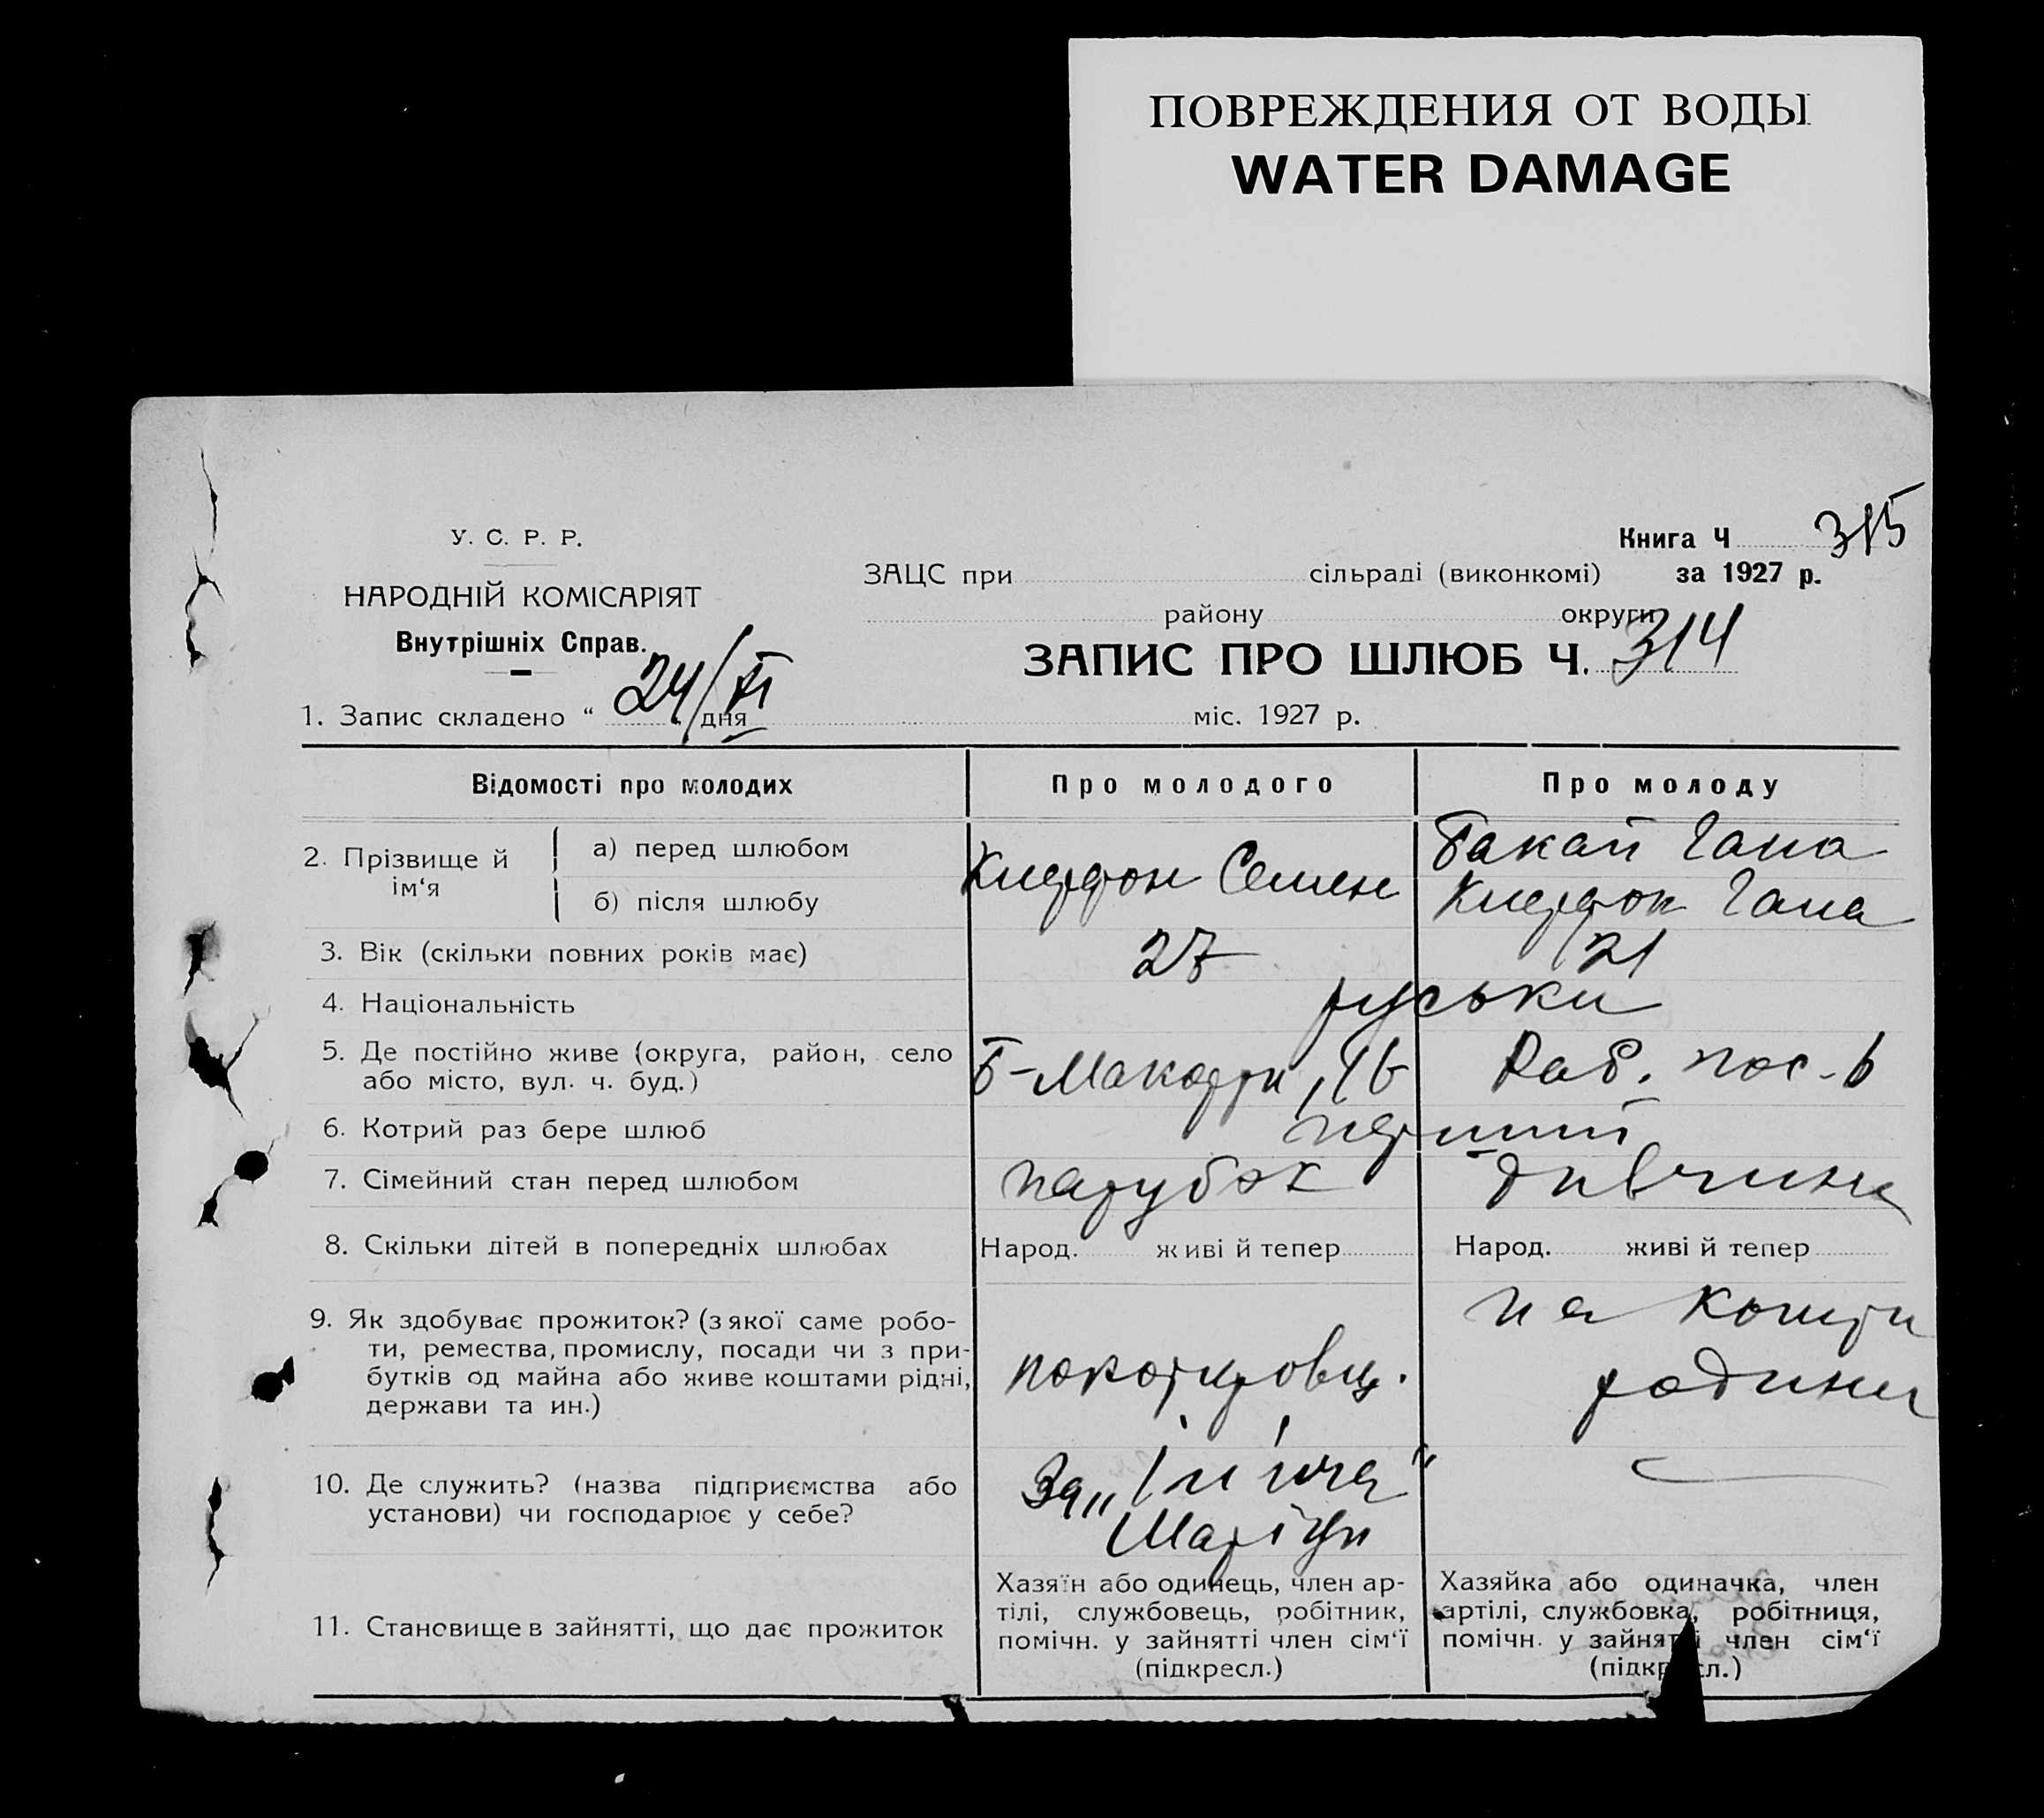 ПОВРЕЖДЕНИЯ ОТ ВОДЫ
WATER DAMAGE
У. С. Р. Р.
НАРОДНІЙ КОМІСАРІЯТ
Внутрішніх Справ.
Книга Ч 315
ЗАЦС при сільраді (виконкомі) за 1927 р.
району округи
ЗАПИС ПРО ШЛЮБ Ч. 314
1. Запис складено “ 24/XI дня міс. 1927 р.
Відомості про молодих
Про молодого
Про молоду
2. Прізвище й ім‘я
а) перед шлюбом
Семен
Бакай Гана
б) після шлюбу
Гана
3. Вік (скільки повних років має)
27
21
4. Національність
руськи
5. Де постійно живе (округа, район, село
або місто, вул. ч. буд.)
Раб. пос-
6. Котрий раз бере шлюб
перший
7. Сімейний стан перед шлюбом
парубок
дивчина
8. Скільки дітей в попередніх шлюбах
Народ. живі й тепер
Народ. живі й тепер
9. Як здобуває прожиток? (з якої саме робо-
ти, ремества, промислу, посади чи з при-
бутків од майна або живе коштами рідні,
держави та ин.)
на кошти
родини
10. Де служить? (назва підприємства або
установи) чи господарює у себе?
За „Ілліча“
11. Становище в зайнятті, що дає прожиток
Хазяїн або одинець, член ар-
тілі, службовець, робітник,
помічн. у зайнятті член сім‘ї
(підкресл.)
Хазяйка або одиначка, член
артілі, службовка, робітниця,
помічн. у зайнятті член сім‘ї
(підкресл.)